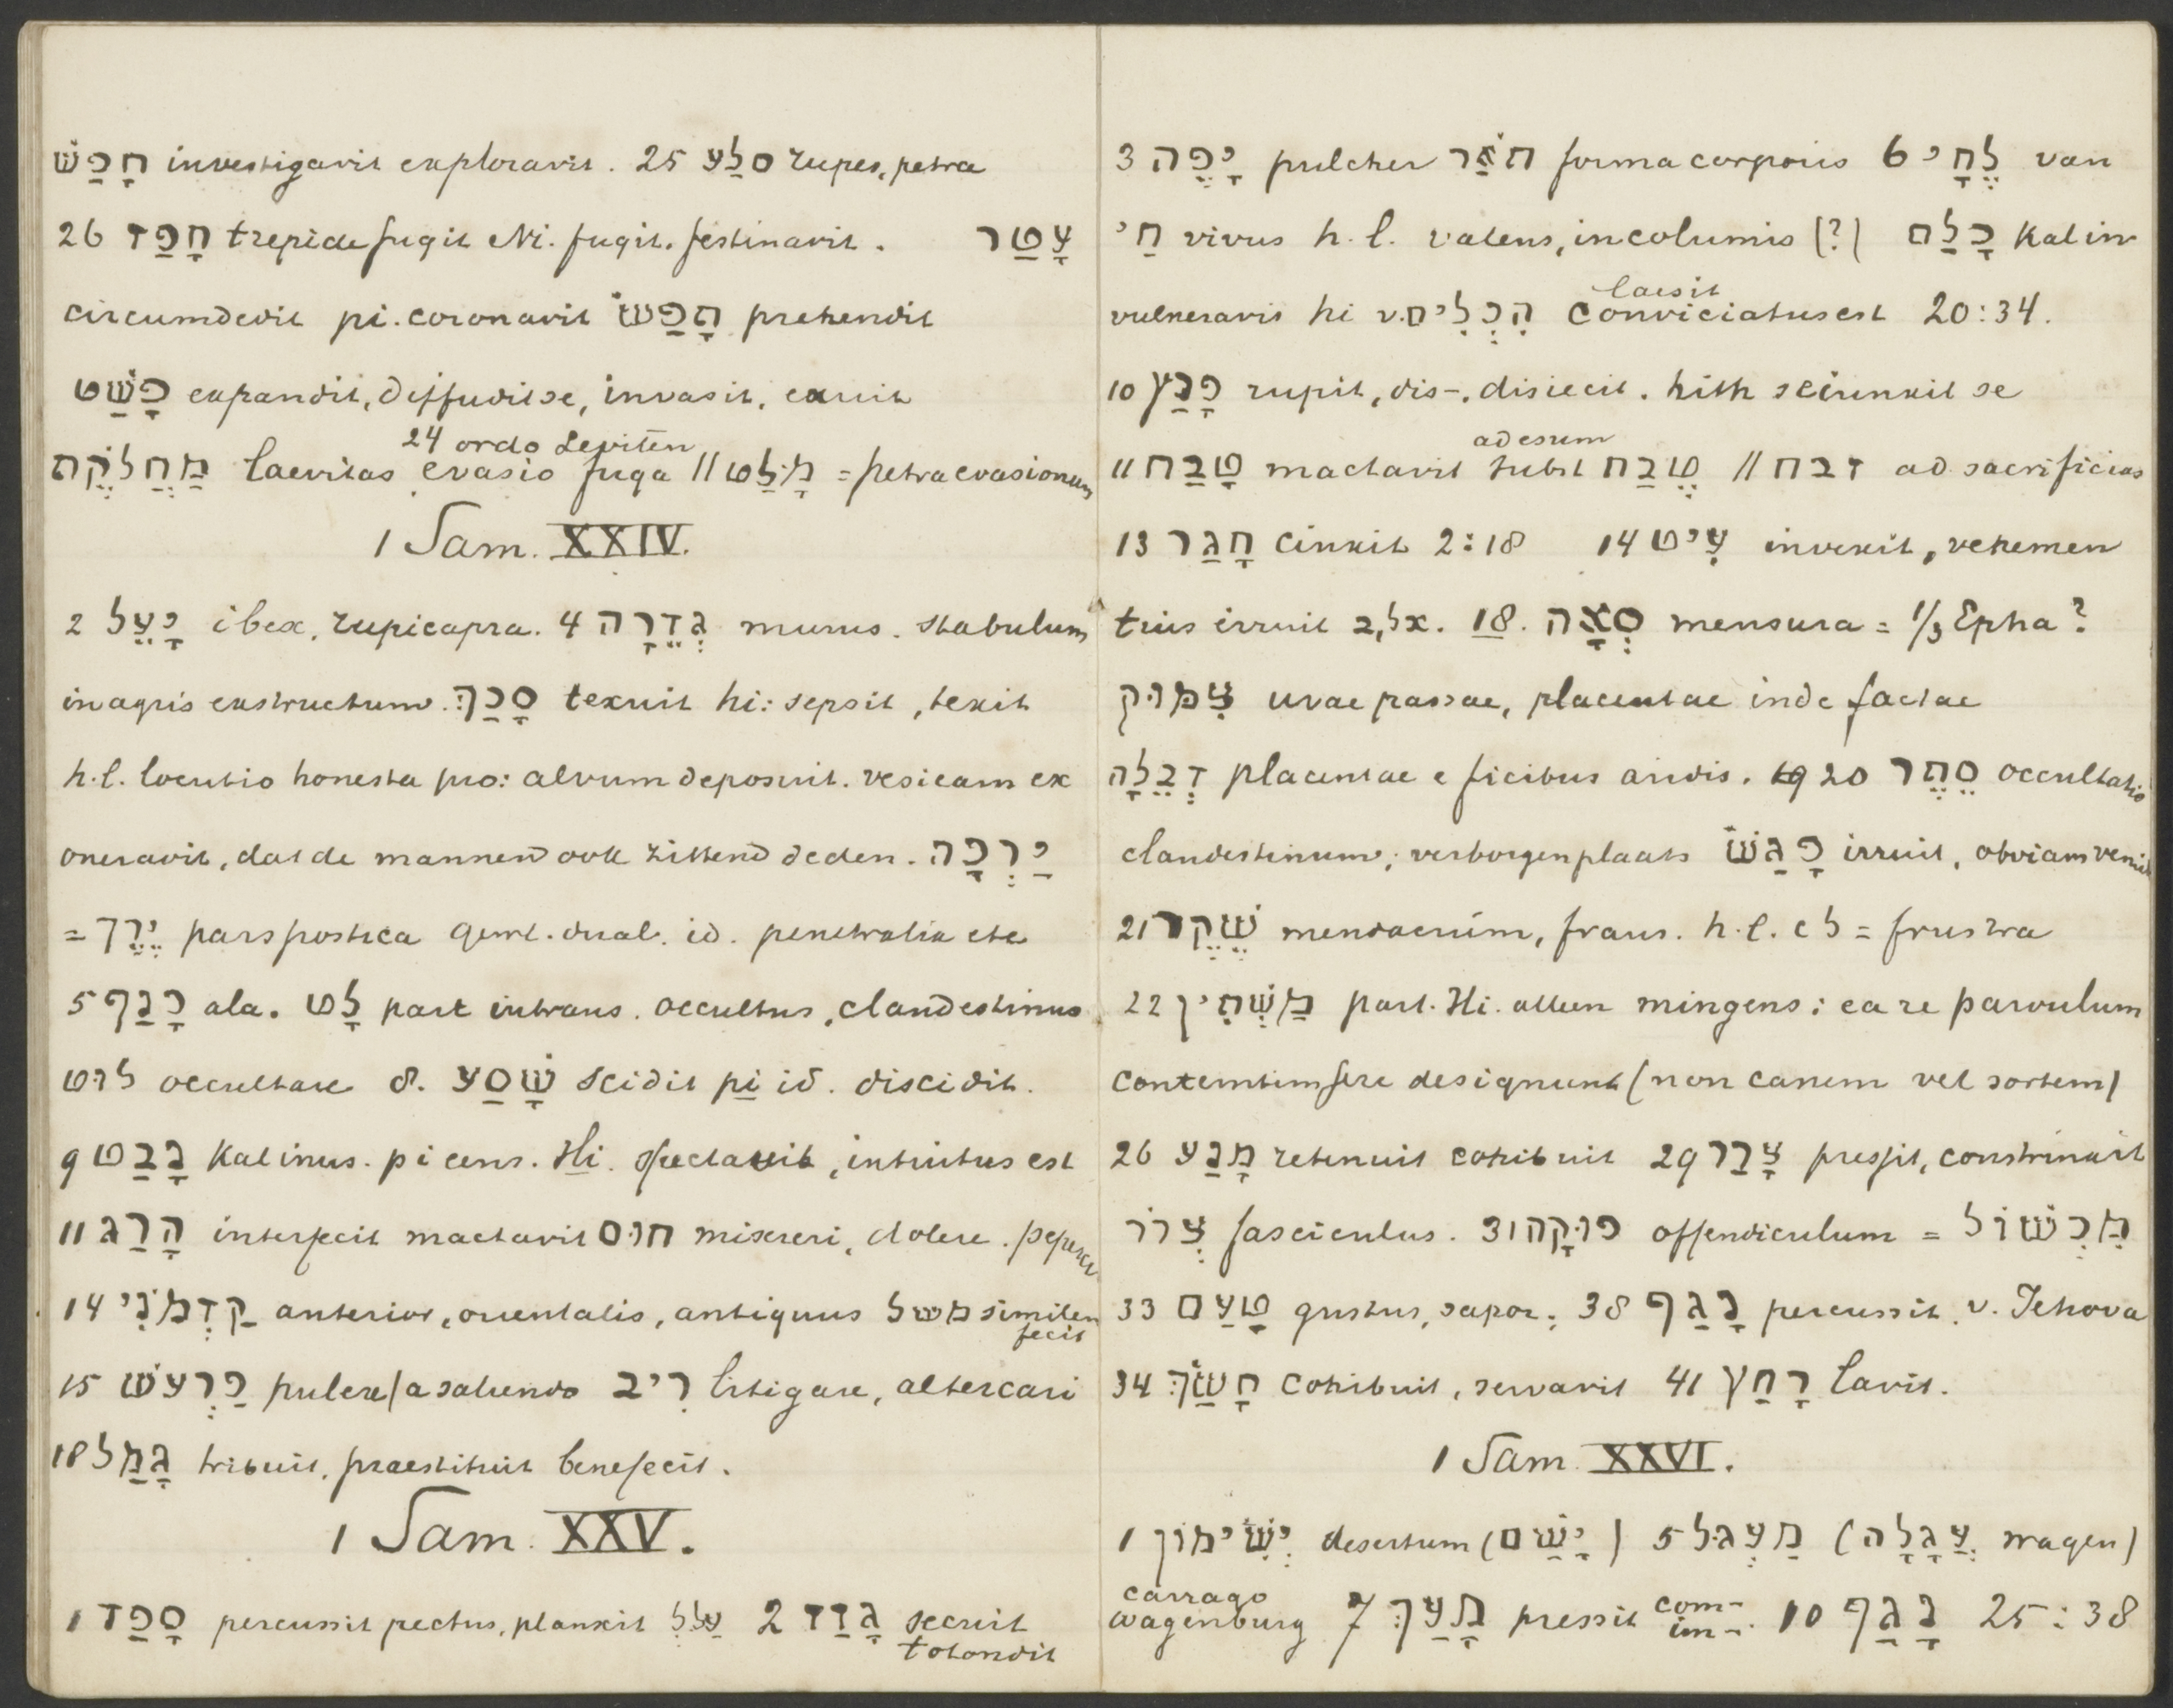 חָפַשׂ investigavit exploravit. 25 סלַע rupes, petra
26 חָפַז trepide fugit Ni. fugit. festinavit. עָטַר
circumdedit pi. coronavit תָפַשׂ prehendit
פָשַׁט expandit, diffudit se, invasit, exuit
24 ordo Leviten
מַחֲלְקֹת laevitas evasio fuga // מִלַּט = petra evasionum
1 Sam. XXIV.
2 יָעֵל ibex, rupicapra. 4 גְדֵרָה murus. stabulum
in agris exstructum. סָכַךְ texuit hi: sepsit, texit
h.l. locutio honesta pro: alvum deposuit. vesicam ex
oneravit, dat de mannen ook zittend deden. יַרְכָה
= יֶרֶךְ pars postica gewl. dual. id. penetralia etc
5 כָנַף ala. לָט part intrans. occultus, clandestinus
לוּט occultare 8. שָׁסַע scidit pi id. discidit.
9 נָבַט Kal inus. pi cens. Hi. spectavit, intuitus est
11 הָרַג interfecit mactavit חוּס misereri, dolere. peperci
14 קַדְמֹנִי anterior, orientalis, antiquus משל similem
fecit
15 פַרְעשׁ pulex / a saliendo רִיב litigare, altercari
18 גָמַל tribuit, praestitit benefecit.
1 Sam. XXV.
1 סָפַד percussit pectus, planxit עַל 2 גָזַז secuit
totondit
3 יָפֶה pulcher תֹּאַר forma corporis 6 לֶחָי van
חַי vivus h.l. valens, incolumis (?) כָלַם Kal in
laesit
vulneravit hi v. הִכְלִים conviciatus est 20:34.
10 פָרַץ rupit, dis-, disiecit. hith seiunxit se
ad esum
11 טָבַח mactavit subst טֶבַח // זבח ad sacrificias
13 חָגַר cinxit 2:18 14 עִיט invexit, vehemen
tius irruit ב, אל. 18. סְאָה mensura = 1/3 Epha?
צִמּוּק uvae passae, placentae inde factae
דְבֵלָה placentae e ficibus aridis. 20 סֵתֶר occultatio
clandestinum; verborgen plaats פָגַשׁ irruit, obviam venit
21 שֶׁקֶר mendacium, fraus. h.l. c ל = frustra
22 מַשְׁתִין part. Hi. alleen mingens: ea re parvulum
contemtim fere designant (non canem vel sortem)
26 מָנַע retenuit cohibuit 29 צָרַר pressit, constrinxit
צְרוֹר fasciculus. 31 פוּקָה offendiculum = מִכְשׁוֹל
33 טָעַם gustus, sapor; 38 נָגַף percussit, v. Jehova
34 חָשַׂךְ cohibuit, servavit 41 רָחַץ lavit.
1 Sam. XXVI.
1 יְשִׁימוֹן desertum (יָשַׁם) 5 מַעְגּל (עֲגָלָה wagen)
carrago
wagenburg 7 מָעַךְ pressit com-
im-. 10 נָגַף 25:38